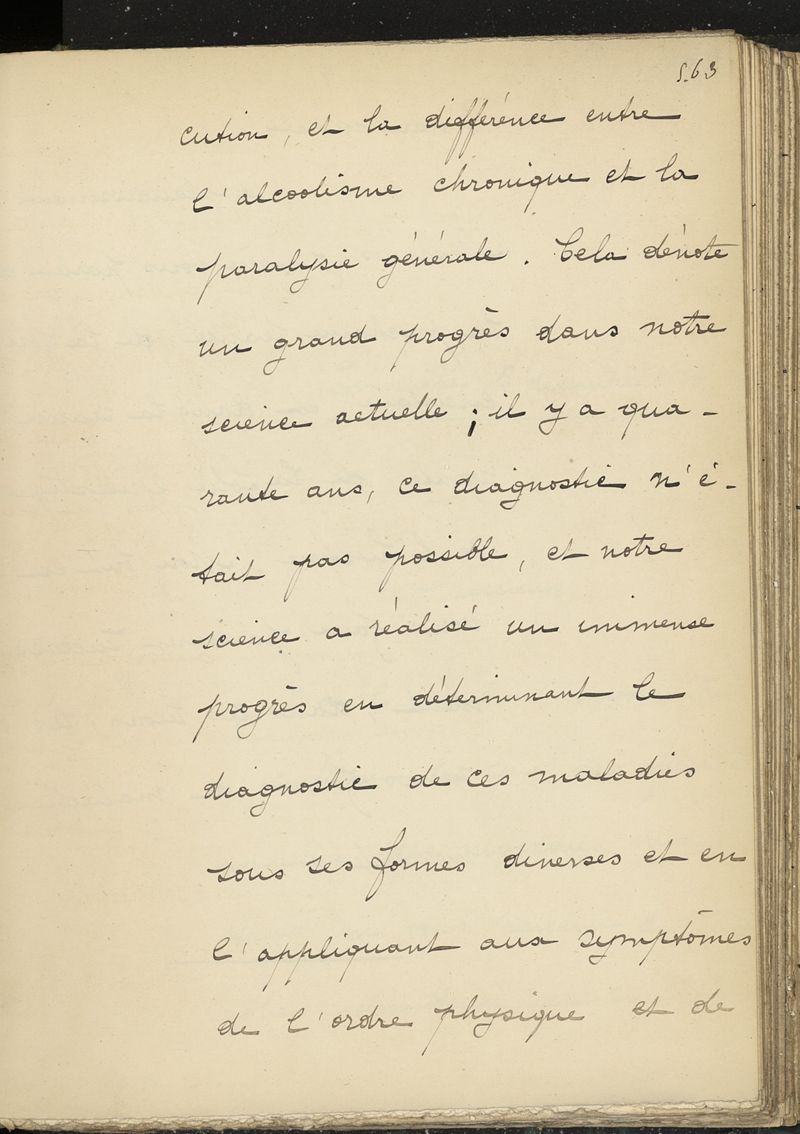 563
cution, et la différence entre
l'alcoolisme chronique et la
paralysie générale. Cela dénote
un grand progrès dans notre
science actuelle ; il y a qua-
rante ans, ce diagnostic n'é-
tait pas possible, et notre
science a réalisé un immense
progrès en déterminant le
diagnostic de ces maladies
sous ses formes diverses et en
l'appliquant aux symptômes
de l'ordre physique et de